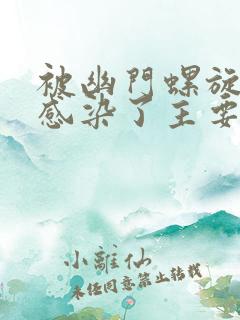 被幽門螺旋
感染了主要
小離仙
未经同意禁止转载